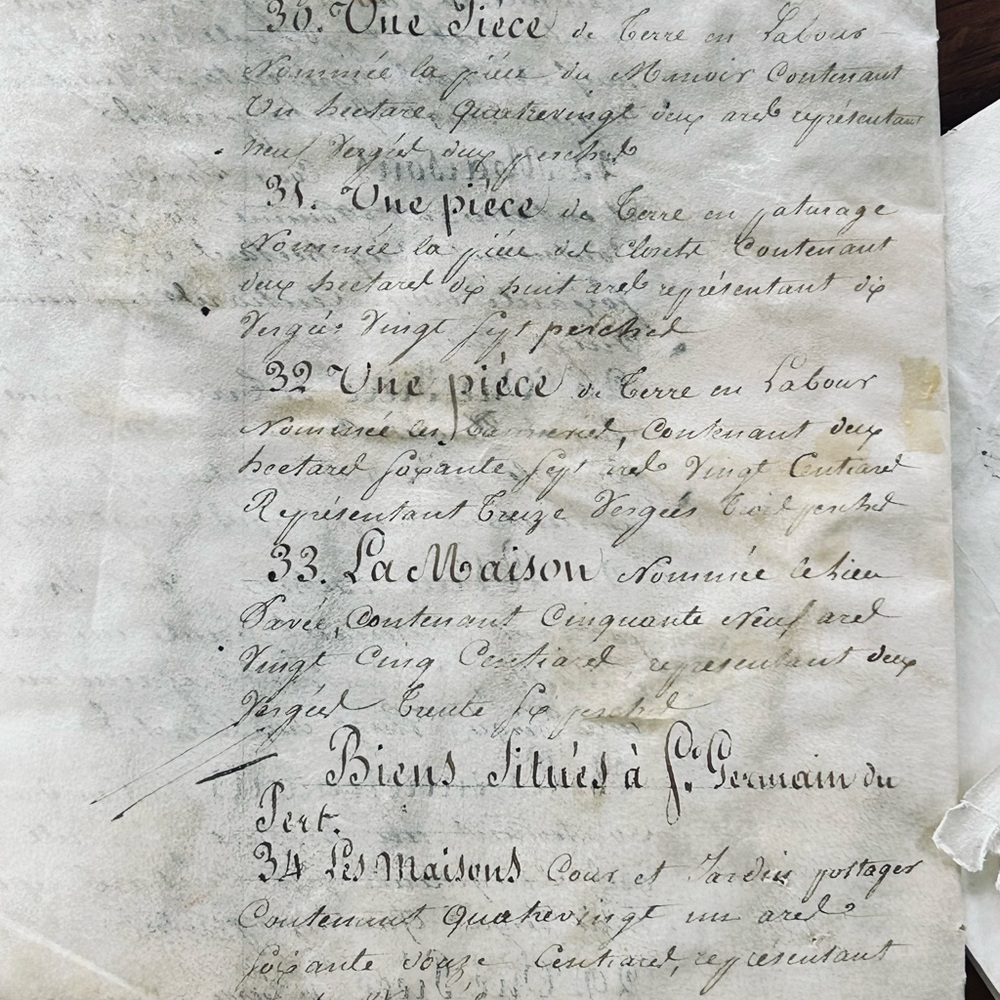 30. Une Pièce de Terre en Labour
Nommée la pièce du Manoir Contenant
Un hectare Quatrevingt deux ares représentant
neuf Vergées deux perches
31. Une pièce de Terre en paturage
Nommée la pièce des Closets Contenant
deux hectares dix huit ares représentant dix
Vergées Vingt sept perches
32 Une pièce de Terre en Labour
Nommée les, Contenant deux
hectares soixante sept ares Vingt Centiares
Représentant Treize Vergées Trois perches
33. La Maison Nommée le Lieu
Pavée, Contenant Cinquante Neuf ares
Vingt Cinq Centiares représentant deux
Vergées Trente six perches
Biens Situés à St. Germain du
Pert.
34 Les Maisons Cour et Jardin pottager
Contenant Quatrevingt un ares
soixante douze Centiares, représentant